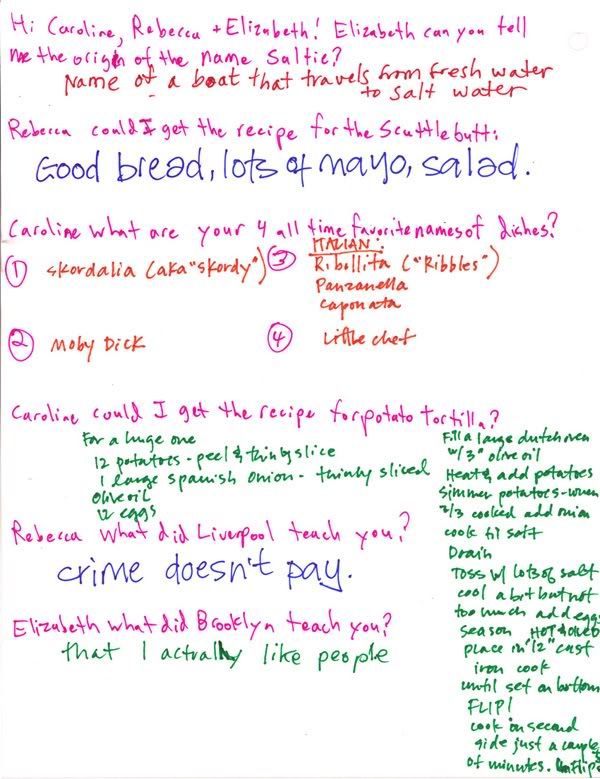 Hi Caroline, Rebecca + Elizabeth! Elizabeth can you tell
me the origin of the name Saltie?
Name of a boat that travels from fresh water
to salt water
Rebecca could I get the recipe for the Scuttlebutt:
Good bread, lots of mayo, salad.
Caroline what are your 4 all time favorite names of dishes?
① skordalia (aka "skordy")
② Moby Dick
③ ITALIAN:
Ribollita ("Ribbles")
Panzanella
caponata
④ Little chef
Caroline could I get the recipe for potato tortilla?
For a huge one
12 potatoes - peel & thinly slice
1 large spanish onion - thinly sliced
olive oil
12 eggs
Fill a large dutch oven
w/ 3" olive oil
Heat & add potatoes
Simmer potatoes - when
2/3 cooked add onion
cook til soft
Drain
Toss w/ lots of salt
cool a bit but not
too much add eggs
season HOT
place in 12" cast
iron cook
until set on bottom
FLIP!
cook on second
side just a couple
of minutes. UnFlip
Rebecca what did Liverpool teach you?
crime doesn't pay.
Elizabeth what did Brooklyn teach you?
that I actually like people